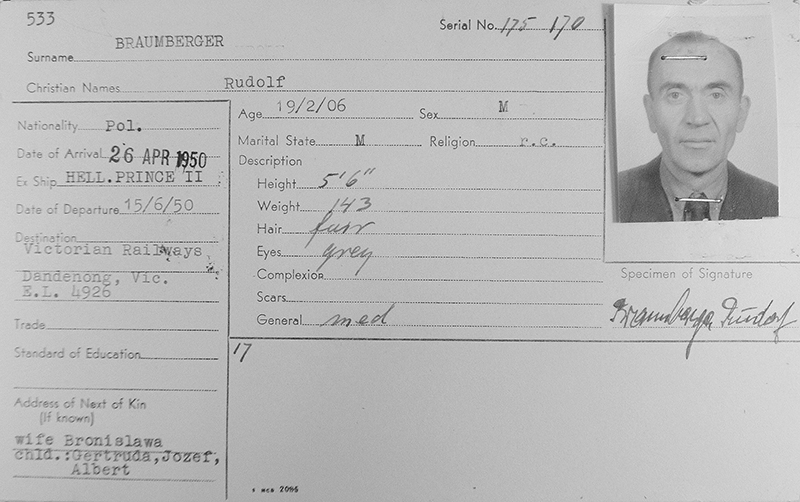 533
Serial No. 175 170
Surname BRAUMBERGER
Christian Names Rudolf
Age 19/2/06 Sex M
Nationality Pol.
Marital State M Religion r.c.
Date of Arrival 26 APR 1950
Description
Ex Ship HELL.PRINCE II
Height 5'6"
Date of Departure 15/6/50
Weight 143
Hair fair
Destination
Victorian Railways
Eyes grey
Dandenong, Vic.
Complexion
E.L. 4926
Scars
Trade
General med
Specimen of Signature
Braumberger Rudolf
Standard of Education
17
Address of Next of Kin
(If known)
wife Bronislawa
chld.:Gertruda,Jozef,
Albert
2096